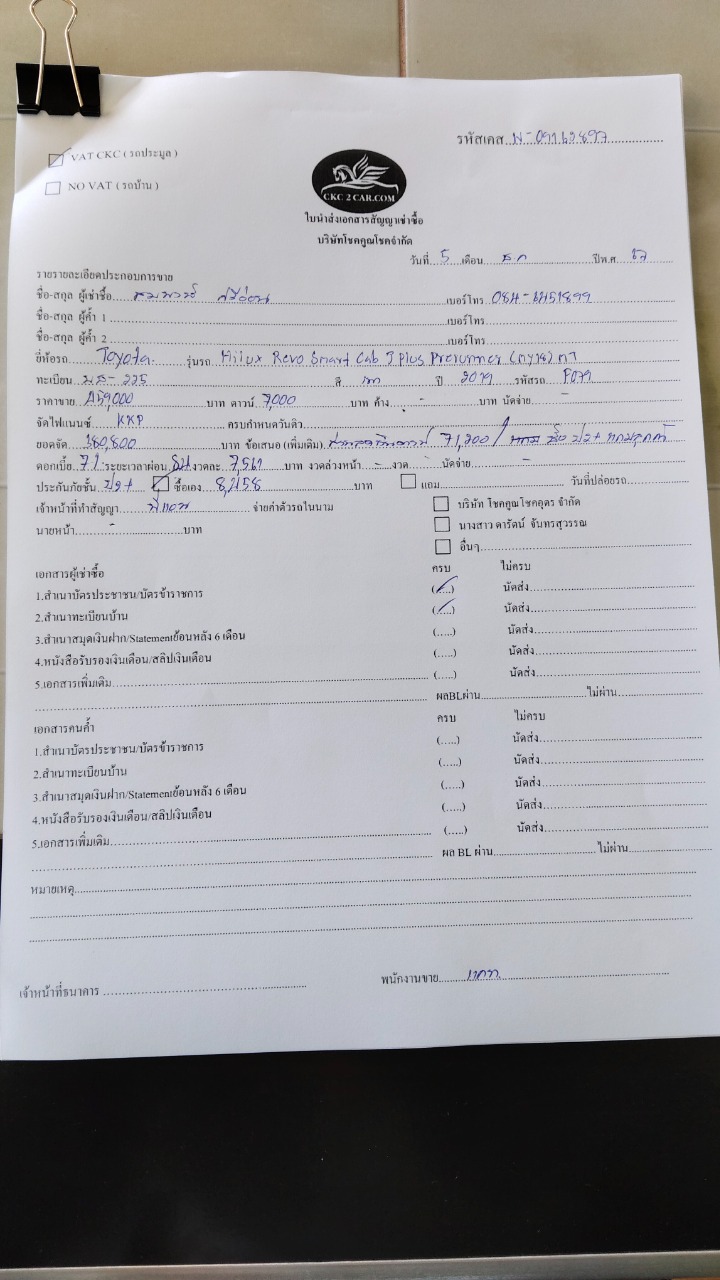 VAT CKC ( รถประมูล )
รหัสเคส
NO VAT ( รถบ้าน )
CKC 2 CAR.COM
ใบนำส่งเอกสารสัญญาเช่าซื้อ
บริษัทโชคคูณโชคจำกัด
วันที่ 5 เดือน ธ.ค ปีพ.ศ.
รายรายละเอียดประกอบการขาย
ชื่อ-สกุล ผู้เช่าซื้อ เบอร์โทร
ชื่อ-สกุล ผู้ค้ำ 1 เบอร์โทร
ชื่อ-สกุล ผู้ค้ำ 2 เบอร์โทร
ยี่ห้อรถ Toyota. รุ่นรถ Hilux Revo Smart Cab J Plus Prerunner
ทะเบียน สี เทา ปี 2019 รหัสรถ P079
ราคาขาย 459,000 บาท ดาวน์ 7,000 บาท ค้าง - บาท นัดจ่าย -
จัดไฟแนนซ์ KKP ครบกำหนดวันดิว
ยอดจัด 380,800 บาท ข้อเสนอ (เพิ่มเติม) 71,200 /
ดอกเบี้ย ระยะเวลาผ่อน งวดละ 7,561 บาท งวดล่วงหน้า - งวด นัดจ่าย -
ประกันภัยชั้น ป2+ ซื้อเอง บาท แถม วันที่ปล่อยรถ
เจ้าหน้าที่ทำสัญญา จ่ายค่าตัวรถในนาม บริษัท โชคคูณโชคอุดร จำกัด
นายหน้า - บาท นางสาว ดารัตน์ จันทรสุวรรณ
อื่นๆ
เอกสารผู้เช่าซื้อ ครบ ไม่ครบ
1.สำเนาบัตรประชาชน/บัตรข้าราชการ (.....) นัดส่ง
2.สำเนาทะเบียนบ้าน (.....) นัดส่ง
3.สำเนาสมุดเงินฝาก/Statementย้อนหลัง 6 เดือน (.....) นัดส่ง
4.หนังสือรับรองเงินเดือน/สลิปเงินเดือน (.....) นัดส่ง
5.เอกสารเพิ่มเติม (.....) นัดส่ง
ผลBLผ่าน ไม่ผ่าน
เอกสารคนค้ำ ครบ ไม่ครบ
1.สำเนาบัตรประชาชน/บัตรข้าราชการ (.....) นัดส่ง
2.สำเนาทะเบียนบ้าน (.....) นัดส่ง
3.สำเนาสมุดเงินฝาก/Statementย้อนหลัง 6 เดือน (.....) นัดส่ง
4.หนังสือรับรองเงินเดือน/สลิปเงินเดือน (.....) นัดส่ง
5.เอกสารเพิ่มเติม (.....) นัดส่ง
ผล BL ผ่าน ไม่ผ่าน
หมายเหตุ
เจ้าหน้าที่ธนาคาร พนักงานขาย